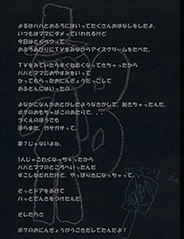 よるはパパとおふろにはいってたくさんおはなしをしたよ。
いつもはママにダメっていわれるけど
今日はとくべつって
おふろあがりにTVをみながらアイスクリームをたべた。
TVをみていたらすぐねむくなって立ちゃったから
パパとママにおやすみをいって
かってもらったおにんぎょうだっこして
おふとんにはいったの
よなかになんかおとがしたようなきがして、起きちゃったんだ。
ボクのおもちゃばこのあたりで。
つくえのほうでも
ほらまた。ガサガサって。
夢?じゃないよね。
1人じゃこわくなっちゃったから
パパとママのところへいったんだ。
すこしおこられたけど、やっぱり気になっちゃって、、
そっとドアをあけて
パッとでんきをつけたんだ。
そしたらさ
ボクのおにんぎょうがうごきだしてたんだよ!